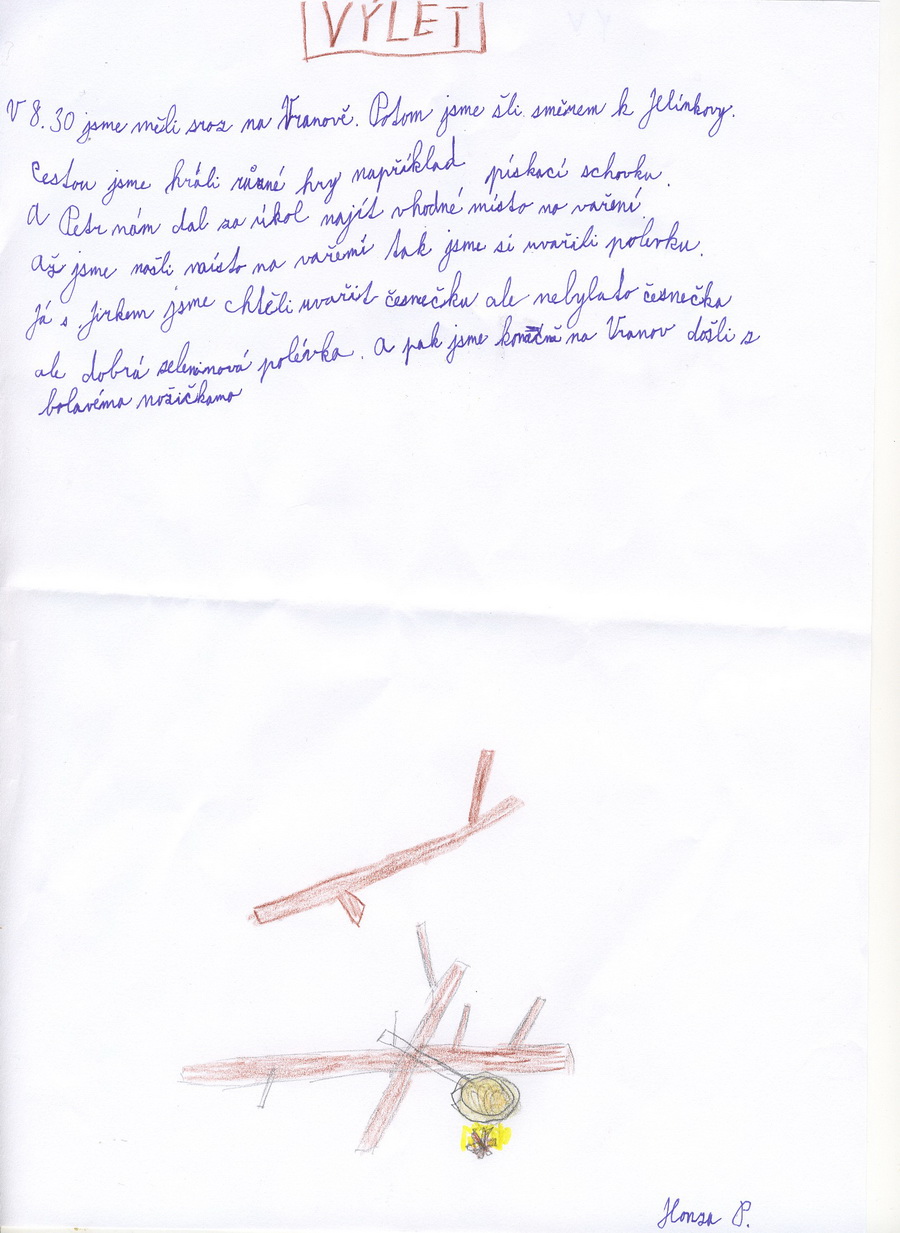 VÝLET
V 8.30 jsme měli sraz na Vranově. Potom jsme šli směrem k Jelínkovy.
Cestou jsme hráli různé hry například pískací schovku.
A Petr nám dal za úkol najít vhodné místo na vaření.
Až jsme našli místo na vaření tak jsme si uvařili polevku.
Já s Jirkem jsme chtěli uvařit česnečku ale nebylato česnečka
ale dobrá seleninová polévka. A pak jsme konečně na Vranov došli s
bolavéma nožičkama
Honza P.